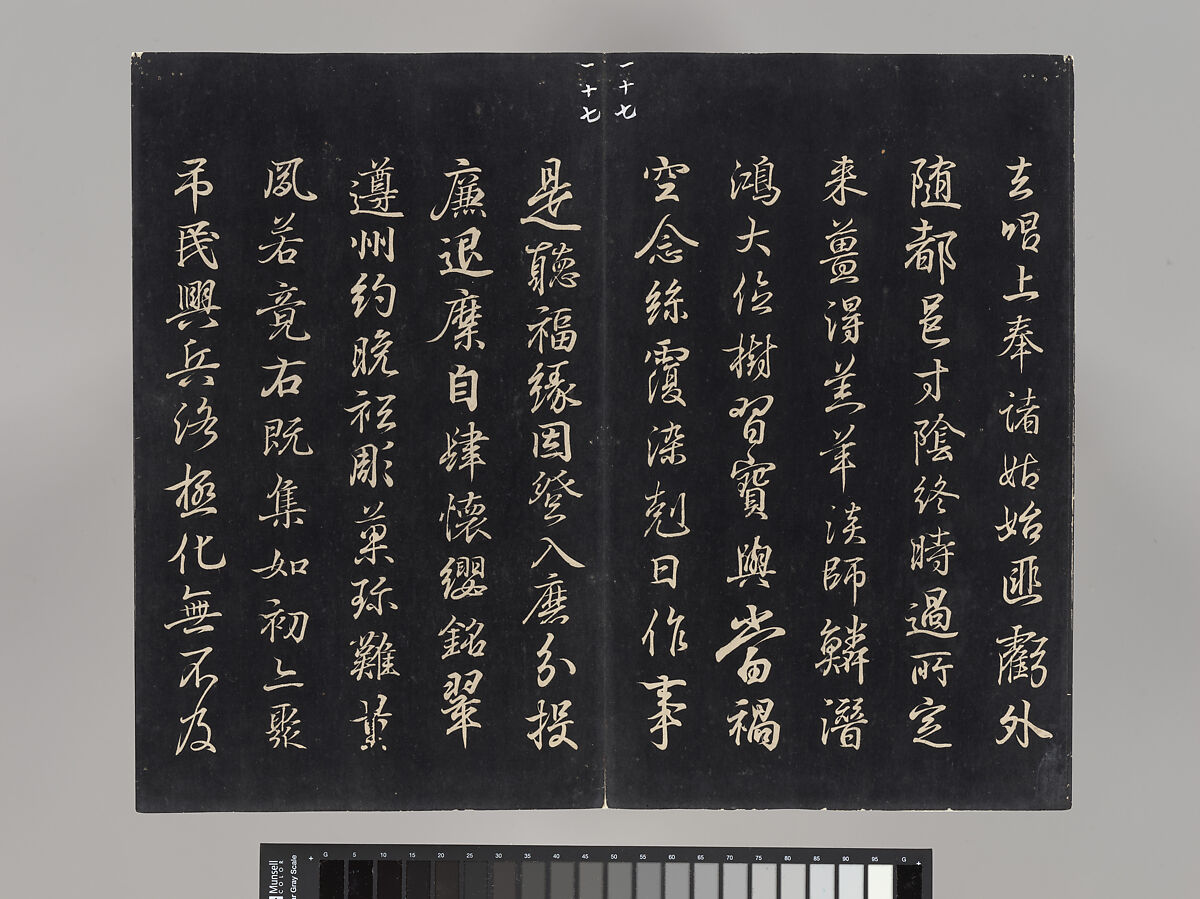 一十七
一十七
去唱上奉諸姑始匪虧外
随都邑寸陰終時過所定
来薑得羔羊淡師鱗潛
鴻大位樹習寶與當禍
空念絲覆染尅日作事
是聽福緣因登入分投
廉退糜自肆懷纓銘翠
遵州約晚松彫菓珍難葉
鳳若竟右既集如初亦聚
吊民興兵洛極化無不及
Munsell
COLOR
Gray Scale
G 5 10 15 20 25 30 35 40 45 50 55 60 65 70 75 80 85 90 95 G